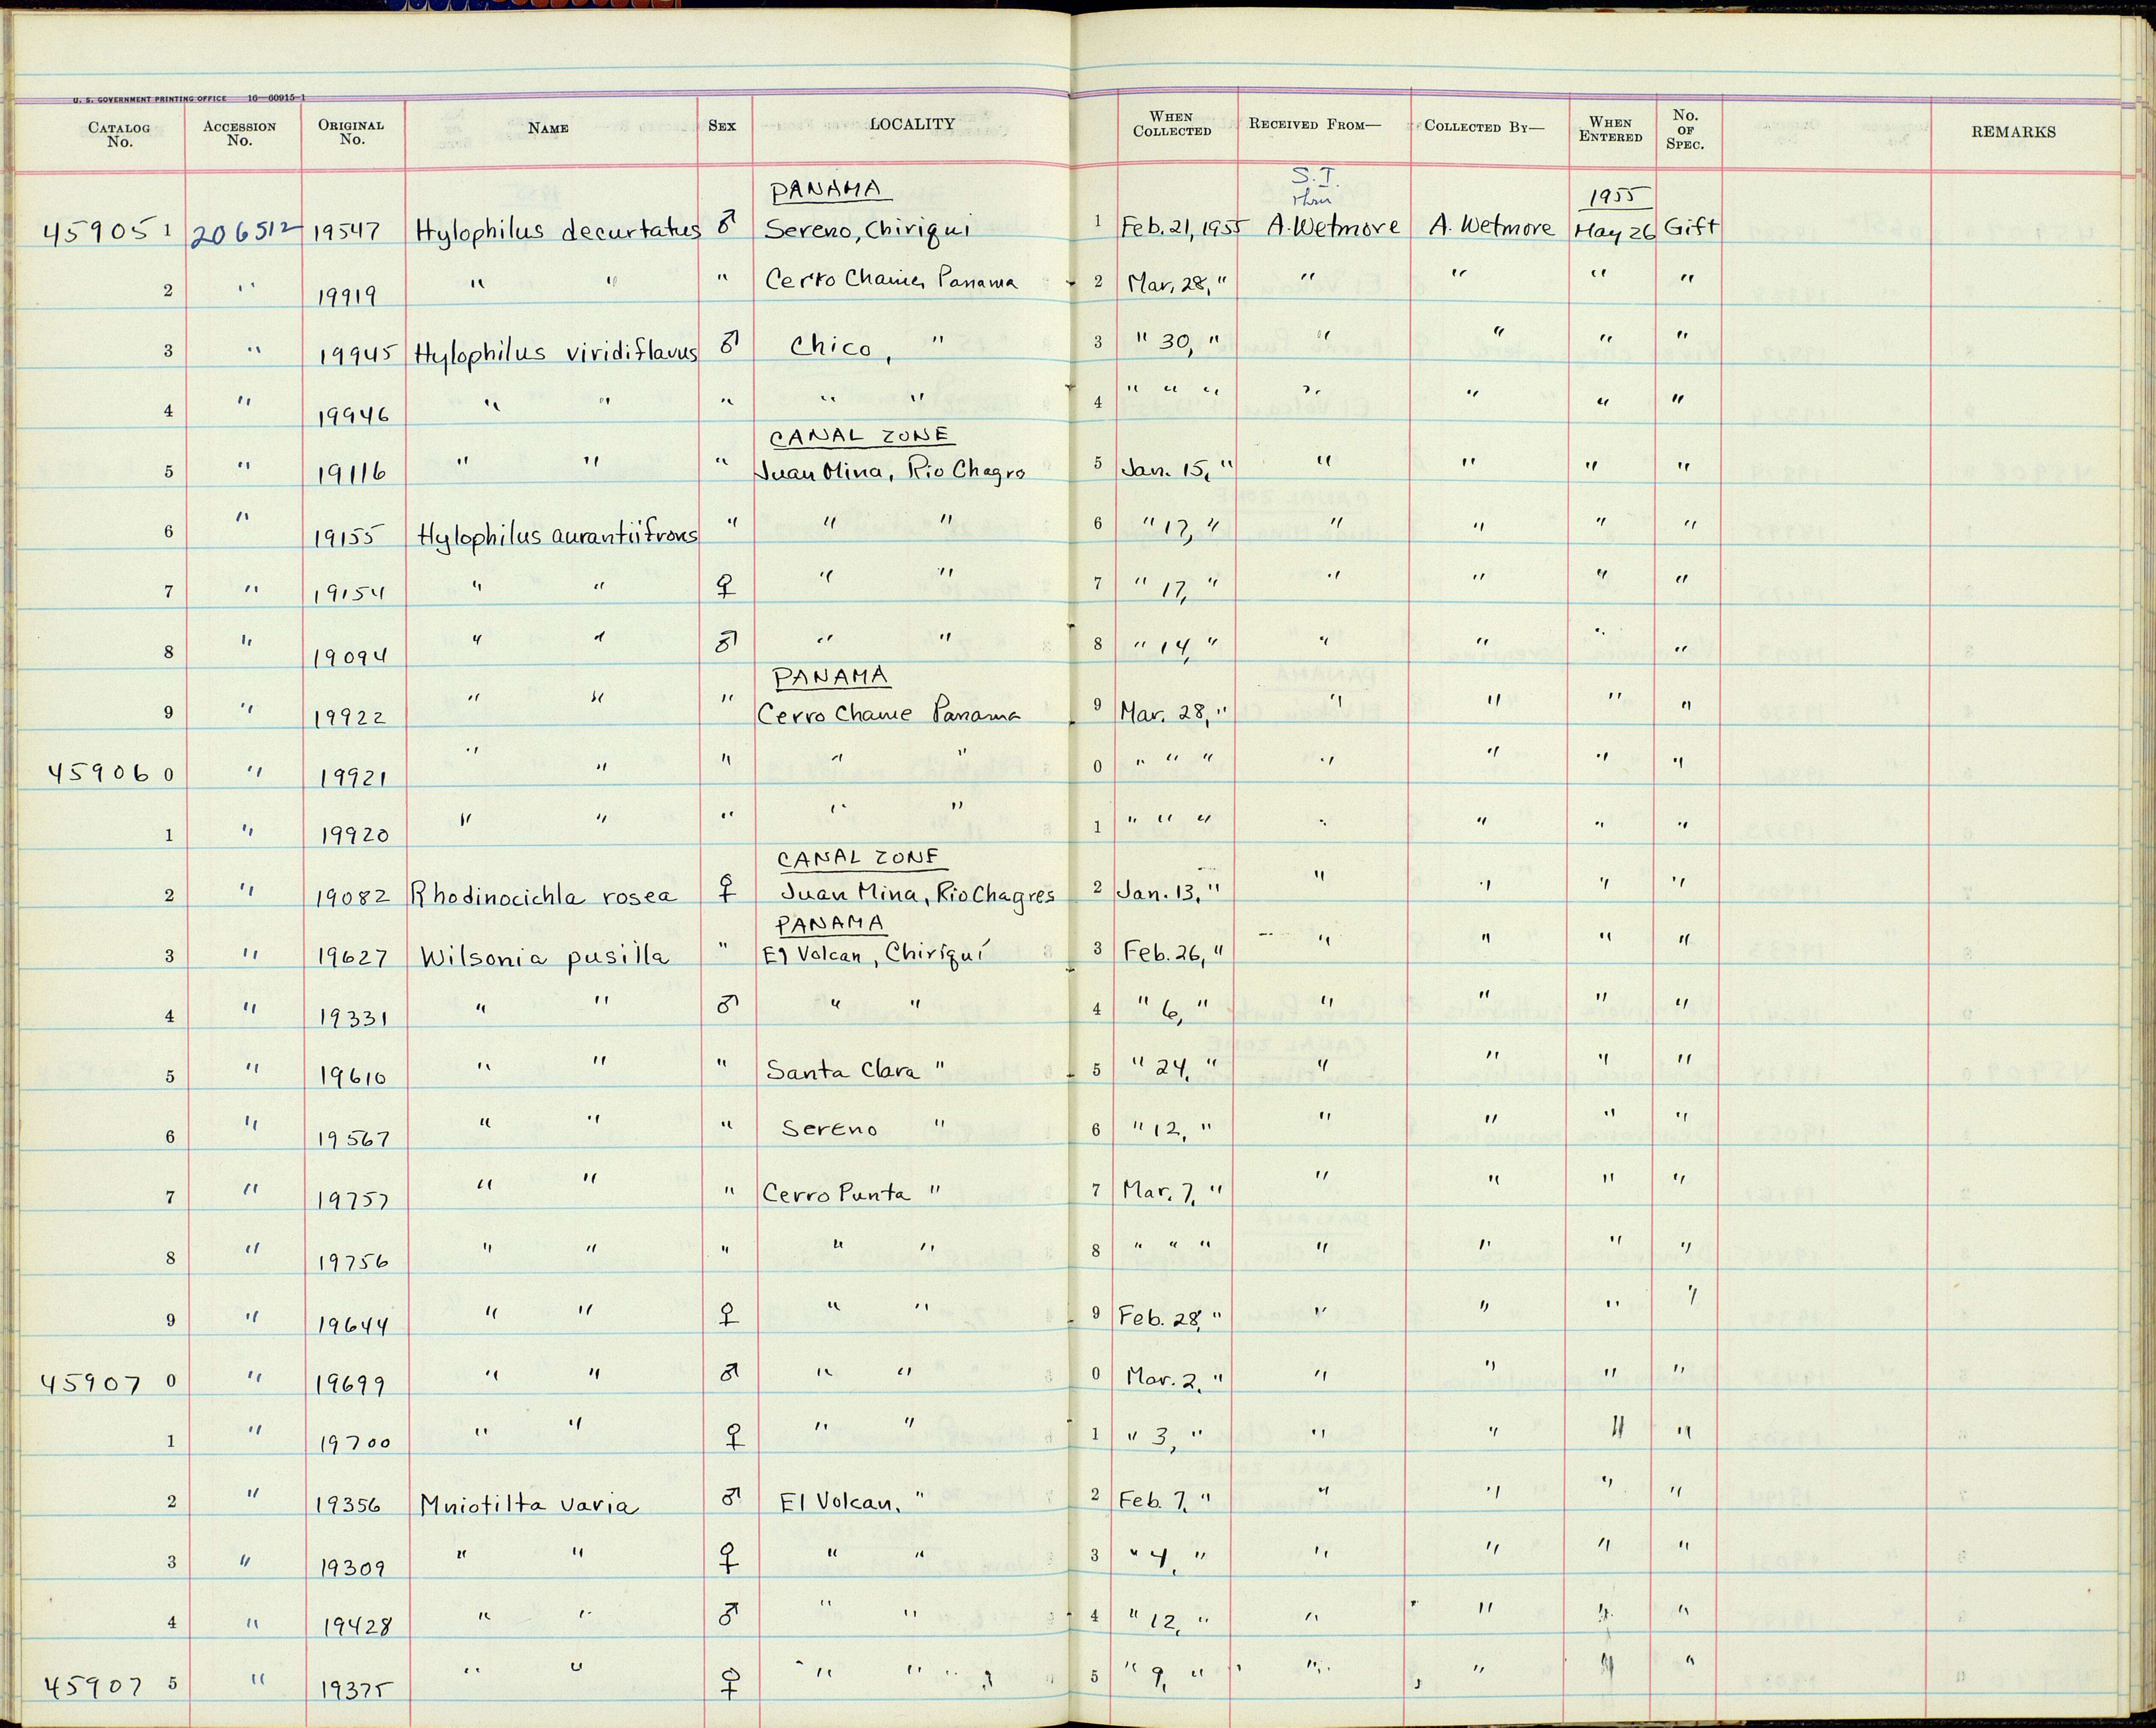 U. S. GOVERNMENT PRINTING OFFICE 16—60915-1
CATALOG No. ACCESSION No. ORIGINAL No. NAME SEX LOCALITY WHEN COLLECTED RECEIVED FROM— COLLECTED BY— WHEN ENTERED No. OF SPEC. REMARKS
PANAMA S.I. thru 1955
459051 206512 19547 Hylophilus decurtatus ♂ Sereno, Chiriqui 1 Feb. 21, 1955 A. Wetmore A. Wetmore May 26 Gift
2 " 19919 " " " Cerro Chame, Panama 2 Mar. 28, " " " " "
3 " 19945 Hylophilus viridiflavus ♂ Chico, " 3 " 30, " " " " "
4 " 19946 " " " " " 4 " " " " " " "
CANAL ZONE
5 " 19116 " " " Juan Mina, Rio Chagre 5 Jan. 15, " " " " "
6 " 19155 Hylophilus aurantiifrons " " " 6 " 17, " " " " "
7 " 19154 " " ♀ " " 7 " 17, " " " " "
8 " 19094 " " ♂ " " 8 " 14, " " " " "
PANAMA
9 " 19922 " " " Cerro Chame Panama 9 Mar. 28, " " " " "
459060 " 19921 " " " " " 0 " " " " " " "
1 " 19920 " " " " " 1 " " " " " " "
CANAL ZONE
2 " 19082 Rhodinocichla rosea ♀ Juan Mina, Rio Chagres 2 Jan. 13, " " " " "
PANAMA
3 " 19627 Wilsonia pusilla " El Volcan, Chiriquí 3 Feb. 26, " " " " "
4 " 19331 " " ♂ " " 4 " 6, " " " " "
5 " 19610 " " " Santa Clara " 5 " 24, " " " " "
6 " 19567 " " " Sereno " 6 " 12, " " " " "
7 " 19757 " " " Cerro Punta " 7 Mar. 7, " " " " "
8 " 19756 " " " " " 8 " " " " " " "
9 " 19644 " " ♀ " " 9 Feb. 28, " " " " "
459070 " 19699 " " ♂ " " 0 Mar. 2, " " " " "
1 " 19700 " " ♀ " " 1 " 3, " " " " "
2 " 19356 Mniotilta varia ♂ El Volcan, " 2 Feb. 7, " " " " "
3 " 19309 " " ♀ " " 3 " 4, " " " " "
4 " 19428 " " ♂ " " 4 " 12, " " " " "
459075 " 19375 " " ♀ " " 5 " 9, " " " " "